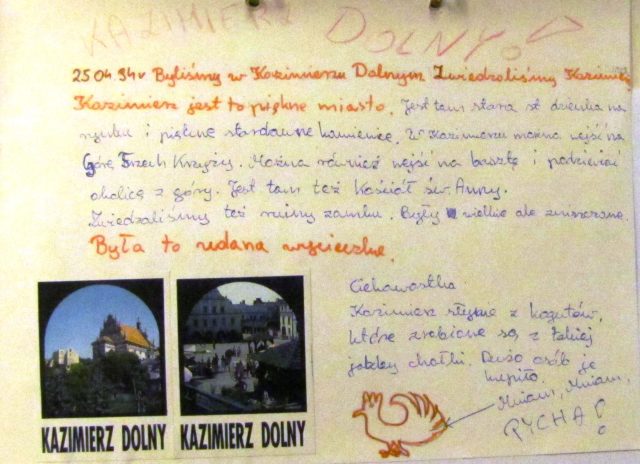 KAZIMIERZ DOLNY!
25.04.94r Byliśmy w Kazimierzu Dolnym Zwiedzaliśmy Kazimierz
Kazimierz jest to piękne miasto. Jest tam stara st dzienka na
rynku i piękne starodawne kamienice. W Kazimierzu można wejść na
Górę Trzech Krzyży. Można również wejść na basztę i podziwiać
okolicę z góry. Jest tam też Kościół św. Anny.
Zwiedzaliśmy też ruiny zamku. Były wielkie ale zniszczone.
Była to udana wycieczka.
Ciekawostka
Kazimierz słynie z kogutów,
które zrobione są z takiej
jakby chałki. Dużo osób je
kupiło.
Mniam, Mniam,
PYCHA!
KAZIMIERZ DOLNY
KAZIMIERZ DOLNY